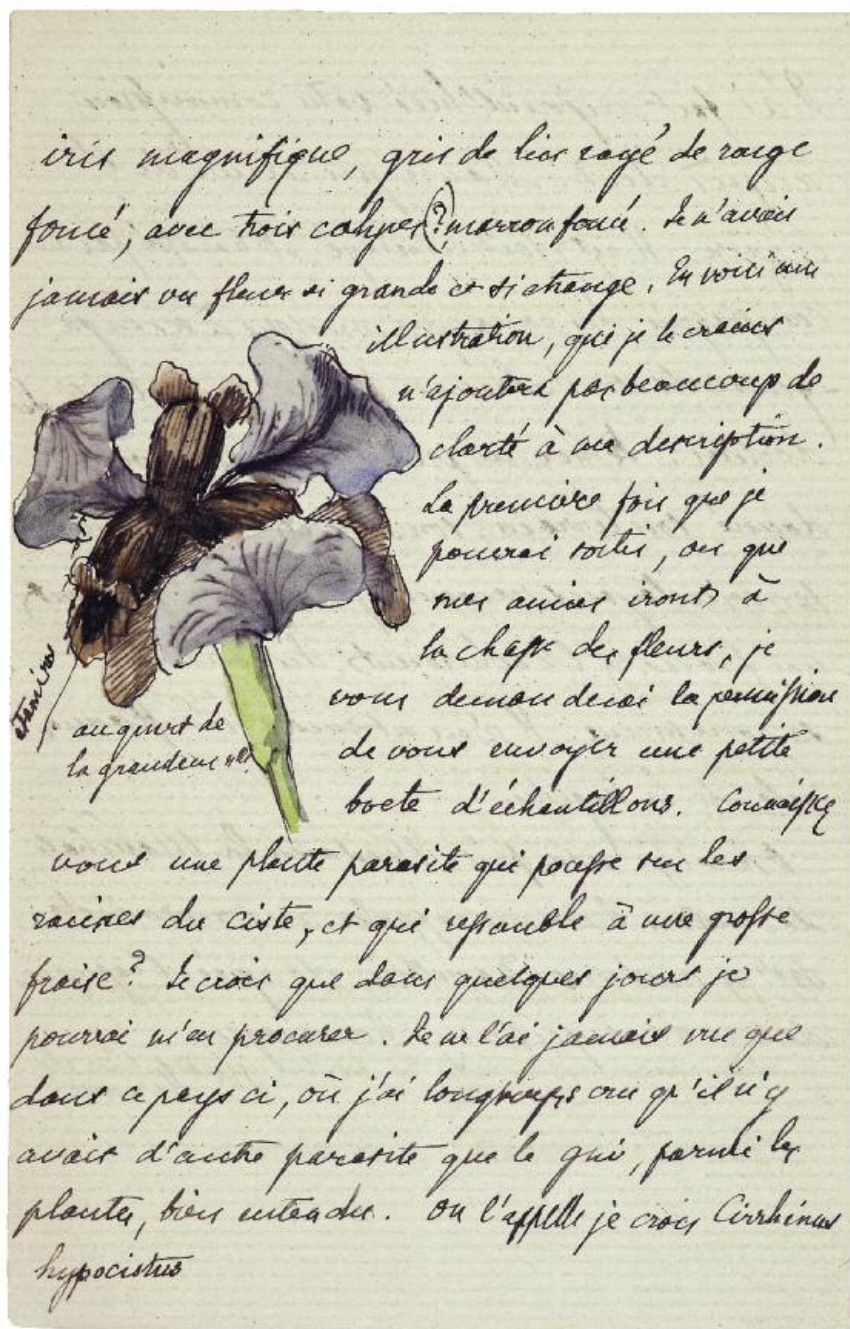 iris magnifique, gris de lin rayé de rouge
foncé, avec trois calyces (?) marron foncé. Je n'avais
jamais vu fleur si grande et si étrange. En voici une
illustration, qui je le crains
n'ajoutera pas beaucoup de
clarté à ma description.
La première fois que je
pourrai sortir, ou que
mes amies iront à
la chasse des fleurs, je
vous demanderai la permission
de vous envoyer une petite
boete d'échantillons. Connaissez
étamines
au quart de
la grandeur nlle
vous une plante parasite qui pousse sur les
racines du ciste, et qui ressemble à une grosse
fraise? Je crois que dans quelques jours je
pourrai m'en procurer. Je ne l'ai jamais vue que
dans ce pays ci, où j'ai longtemps cru qu'il n'y
avait d'autre parasite que le gui, parmi les
plantes, bien entendu. On l'appelle je crois Cirrhinus
hypocistus